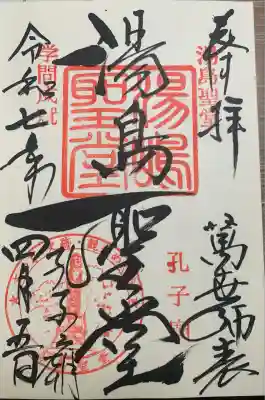 奉拝
萬世師表
湯島聖堂
孔子廟
令和七年
四月五日
湯島聖堂
孔子廟
湯島聖堂
学問成就